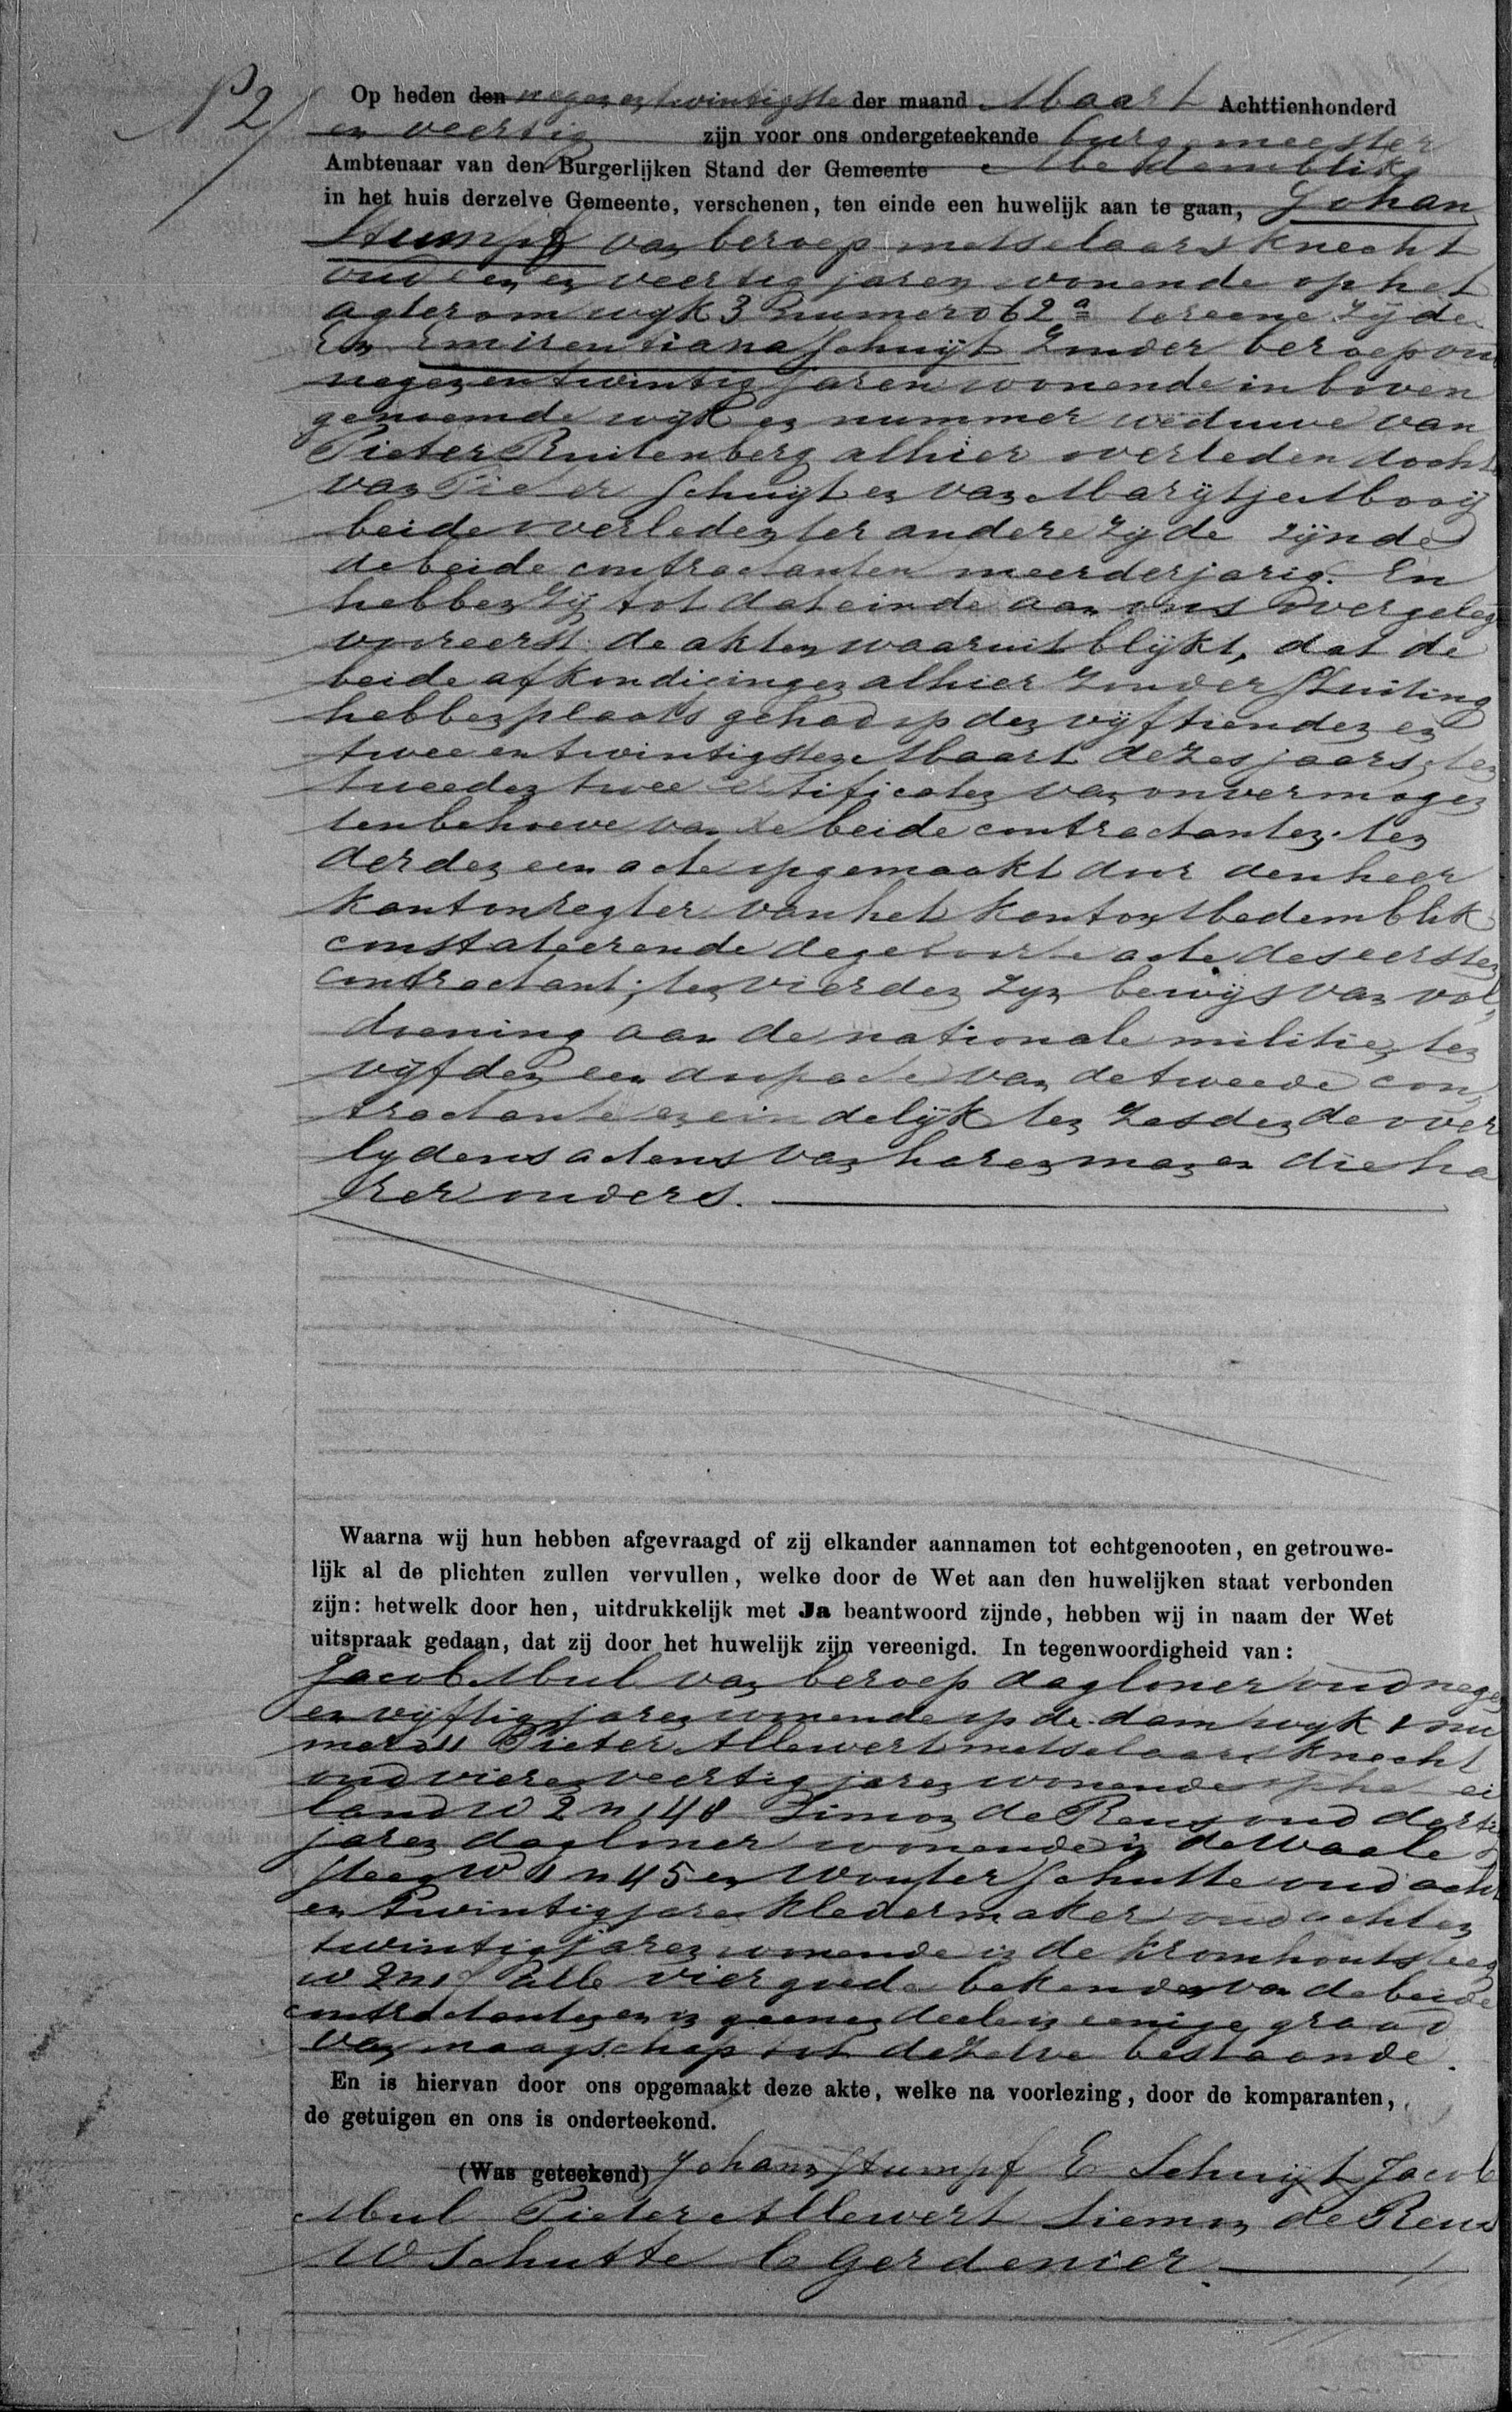 N 2
Op heden den negen en twintigste der maand Maart Achttienhonderd
en veertig zijn voor ons ondergeteekende burgemeester
Ambtenaar van den Burgerlijken Stand der Gemeente Medemblik
in het huis derzelve Gemeente, verschenen, ten einde een huwelijk aan te gaan, Johan
Stumpf van beroep metselaars knecht
oud een en veertig jaren wonende op het
agterom wyk 3 numero 62a ter eene zijde
En Emirentiana Schuijt zonder beroep ou
negen en twintig jaren wonende in boven
genoemde wijk en nummer weduwe van
Pieter Ruitenberg alhier overleden docht
van Pieter Schuijt en van Marijtje Mooij
beide overleden ter andere zijde zijnde
de beide contractanten meerderjarig. En
hebben zij tot dat einde aan ons overgeleg
vooreerst de akten waaruit blijkt, dat de
beide afkondigingen alhier zonder stuiting
hebben plaats gehad op den vijftienden en
twee en twintigsten Maart dezes jaars, ten
tweeden twee certificaten van onvermogen
ten behoeve van de beide contractanten. ten
derden een acte opgemaakt door den heer
kantonregter van het kanton Medemblik
constateerende de geboorte acte des eersten
contractant; ten vierden zijn bewijs van vol
doening aan de nationale militie, ten
vijfden een doopacte van de tweede con
tractante en eindelijk ten zesden de over
lydens actens van haren man en die ha
rer ouders.
Waarna wij hun hebben afgevraagd of zij elkander aannamen tot echtgenooten, en getrouwe-
lijk al de plichten zullen vervullen, welke door de Wet aan den huwelijken staat verbonden
zijn: hetwelk door hen, uitdrukkelijk met Ja beantwoord zijnde, hebben wij in naam der Wet
uitspraak gedaan, dat zij door het huwelijk zijn vereenigd. In tegenwoordigheid van:
Jacob Mul van beroep dagloner oud negen
en vijftig jaren wonende op de dam wyk 1 nu
mero 11 Pieter Allewert metselaars knecht
oud vier en veertig jaren wonende op het ei
land W 2 n 148 Simon de Reus oud dertig
jaren dagloner wonende in de Waale
steeg W 1 n 45 en Wouter Schutte oud acht
en twintig jaren kledermaker oud acht en
twintig jaren wonende in de Kromhoutsteeg
alle vier goede bekenden van de beide
contractanten en in geenen deele in eenige graad
van maagschap tot dezelve bestaande.
En is hiervan door ons opgemaakt deze akte, welke na voorlezing, door de komparanten,
de getuigen en ons is onderteekend.
(Was geteekend) Johann Stumpf E Schuijt Jacob
Mul Pieter Allewert Siemon de Reus
W Schutte C Gerdenier